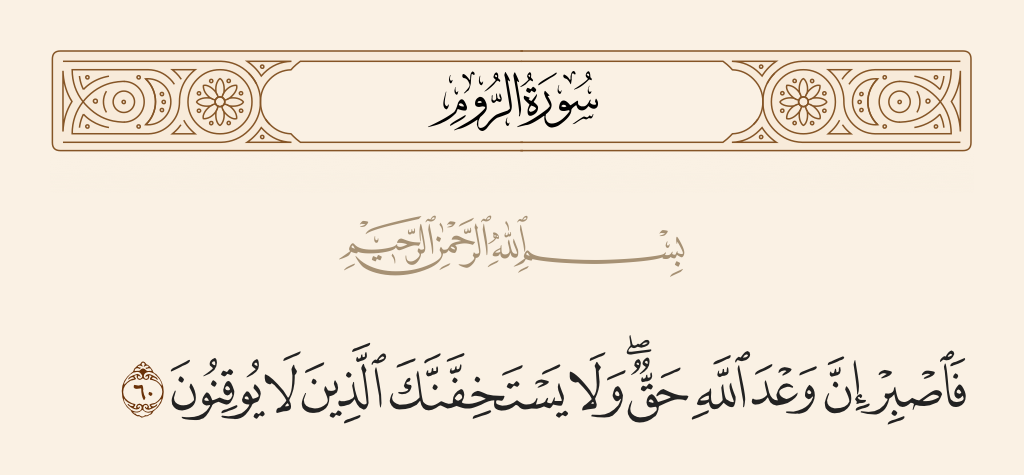 سُورَةُ الرُّومِ
بِسْمِ ٱللَّهِ ٱلرَّحْمَٰنِ ٱلرَّحِيمِ
فَٱصْبِرْ إِنَّ وَعْدَ ٱللَّهِ حَقٌّۖ وَلَا يَسْتَخِفَّنَّكَ ٱلَّذِينَ لَا يُوقِنُونَ ٦٠